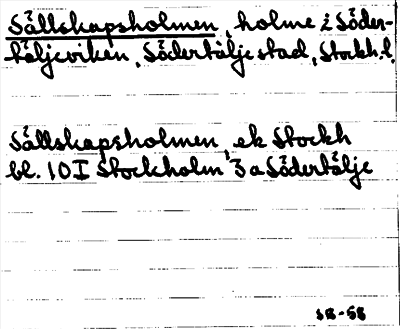 Sällskapsholmen, holme i Söder-
täljeviken, Södertälje stad, Stockh. l.
Sällskapsholmen ek Stockh
bl. 10 I Stockholm 3 a Södertälje
SB-58